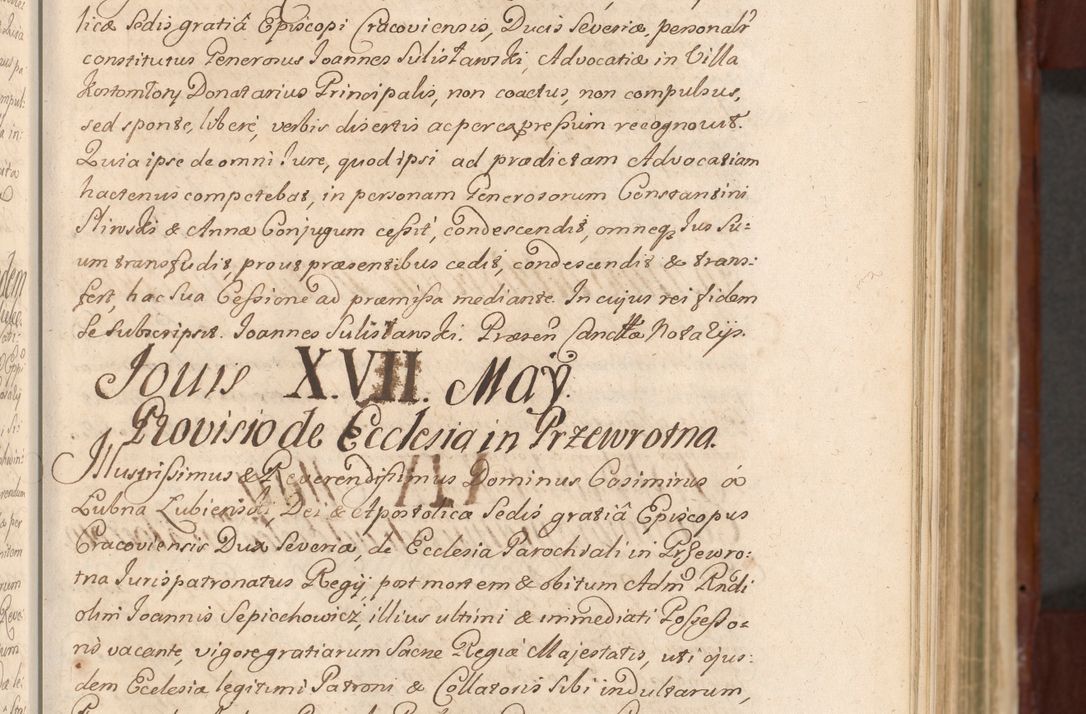 licæ Sedis gratiâ Episcopi Cracoviensis, Ducis Severiæ, personalr
constitutus Generosus Joannes Sulisławski, Advocatiæ in Villa
Kostomłoty Donatarius Principalis, non coactus, non compulsus,
sed sponte, liberè, verbis disertis ac per expressum recognovit.
Quia ipse de omni Jure, quod ipsi ad prædictam Advocatiam
hactenus competebat, in personam Generosorum Constantini
Sliwski & Annæ Conjugum cessit, condescendit, omneq3 Jus Su=
um transfudit, prout præsentibus cedit, condescendit & trans=
fert, hac Sua Cessione ad præmissa mediante. In cujus rei fidem
Se Subscripsit. Joannes Sulisławski. Præsen Notarijs.
Jouis X.VII. Maÿ.
Provisio de Ecclesia in Przewrotna.
Illustrissimus & Reverendissimus Dominus Casimirus á
Lubna Łubienski, Dei & Apostolicæ Sedis gratiâ Episcopus
Cracoviensis Dux Severiæ, de Ecclesia Parochiali in Przewro=
tna Juris patronatus Regij, post mortem & obitum Adm Rndi
olim Joannis Sepiochowicz, illius ultimi & immediati Possesso=
ris vacante, vigore gratiarum Sacræ Regiæ Majestatis, uti ejus=
dem Ecclesiæ legitimi Patroni & Collatoris Sibi indultarum,